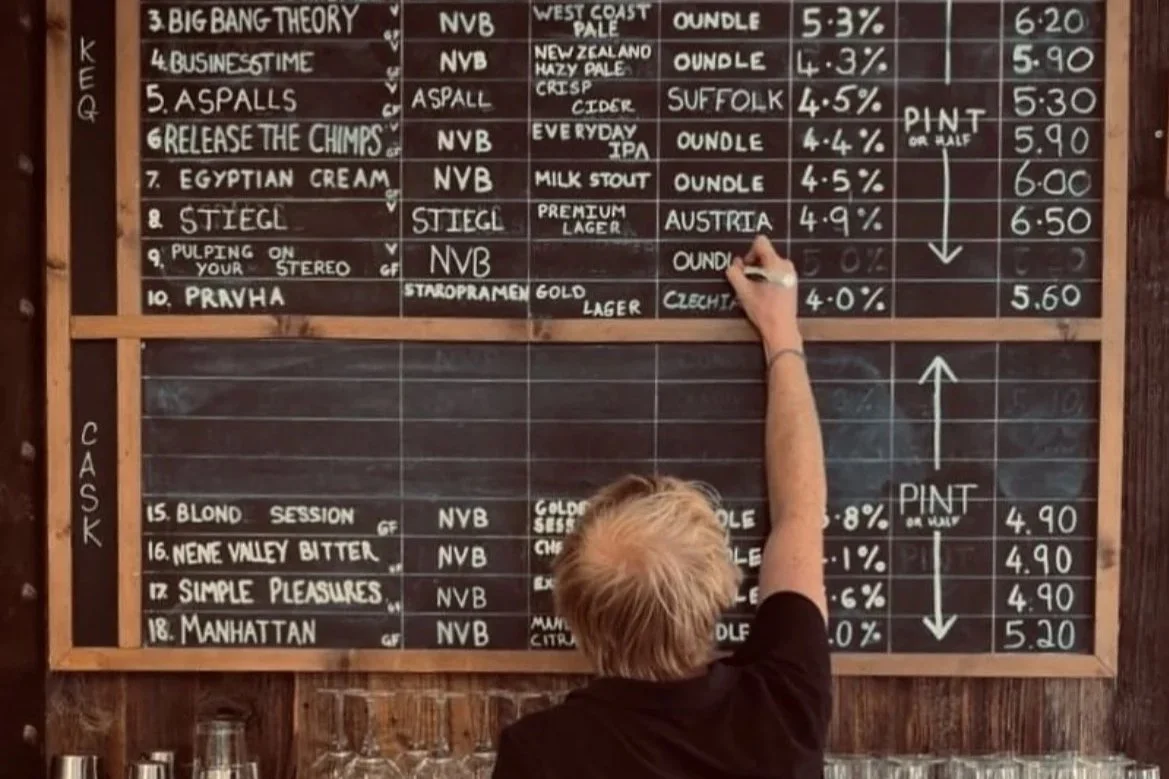 KEG
3. BIG BANG THEORY V GF NVB WEST COAST PALE OUNDLE 5.3% 6.20
4. BUSINESSTIME V GF NVB NEW ZEALAND HAZY PALE OUNDLE 4.3% 5.90
5. ASPALLS V GF ASPALL CRISP CIDER SUFFOLK 4.5% 5.30
PINT OR HALF
6 RELEASE THE CHIMPS V GF NVB EVERYDAY IPA OUNDLE 4.4% 5.90
7. EGYPTIAN CREAM GF NVB MILK STOUT OUNDLE 4.5% 6.00
8. STIEGL V STIEGL PREMIUM LAGER AUSTRIA 4.9% 6.50
9. PULPING ON YOUR STEREO V GF NVB OUNDL 5.0%
10. PRAVHA STAROPRAMEN GOLD LAGER CZECHIA 4.0% 5.60
CASK
PINT OR HALF
15. BLOND SESSION GF NVB GOLDE SESS DLE .8% 4.90
16. NENE VALLEY BITTER NVB CHE LE .1% 4.90
17. SIMPLE PLEASURES NVB EX LE .6% 4.90
18. MANHATTAN GF NVB MAN CITRA DLE .0% 5.20